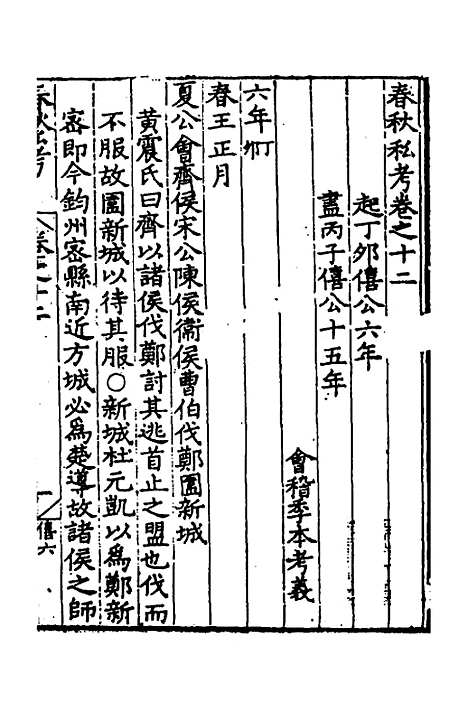 春秋私考卷之十二
起丁夘僖公六年
盡丙子僖公十五年
會稽季本考義
六年丁夘
春王正月
夏公會齊侯宋公陳侯衞侯曹伯伐鄭圍新城
黃震氏曰齊以諸侯伐鄭討其逃首止之盟也伐而
不服故圍新城以待其服〇新城杜元凱以爲鄭新
宻即今鈞州宻縣南近方城必爲楚導故諸侯之師
春秋私考
卷之十二
一
僖六